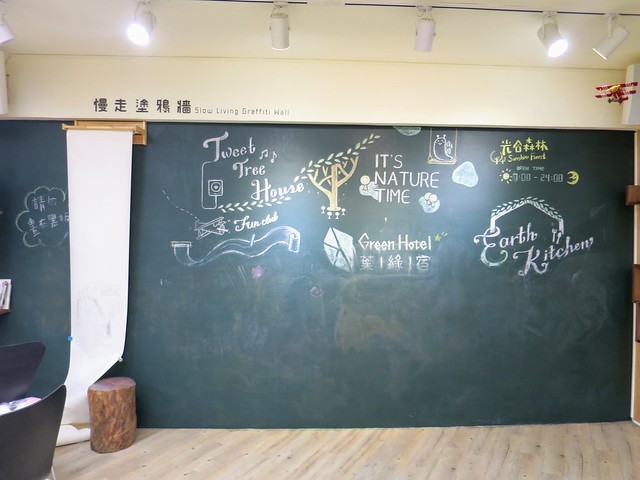 慢走塗鴉牆 Slow Living Graffiti Wall
Tweet
Tree
House
Fun club
IT'S
NATURE
TIME
Green Hotel
葉|綠|宿
光合森林
Sunshine Forest
OPEN TIME
7:00 - 24:00
Earth
Kitchen
請勿